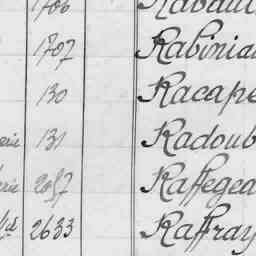 1706 Rabaud
1707 Rabinia
130 Racape
erie 131 Radoub
erie 2087 Raffegea
2633 Raffray